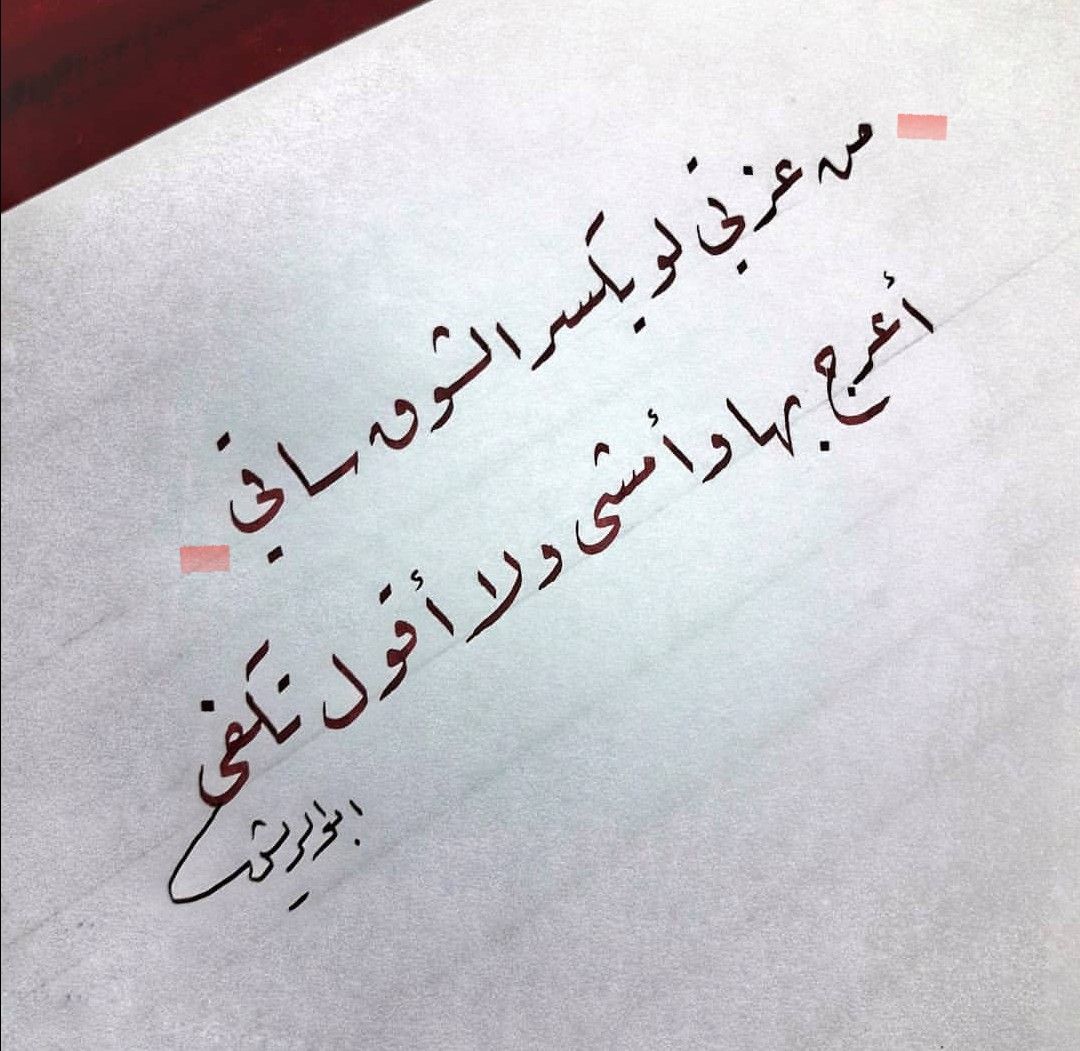 من عزتي لو يكسر الشوق ساقي
أعرج بها وأمشى ولا أقول تكفى